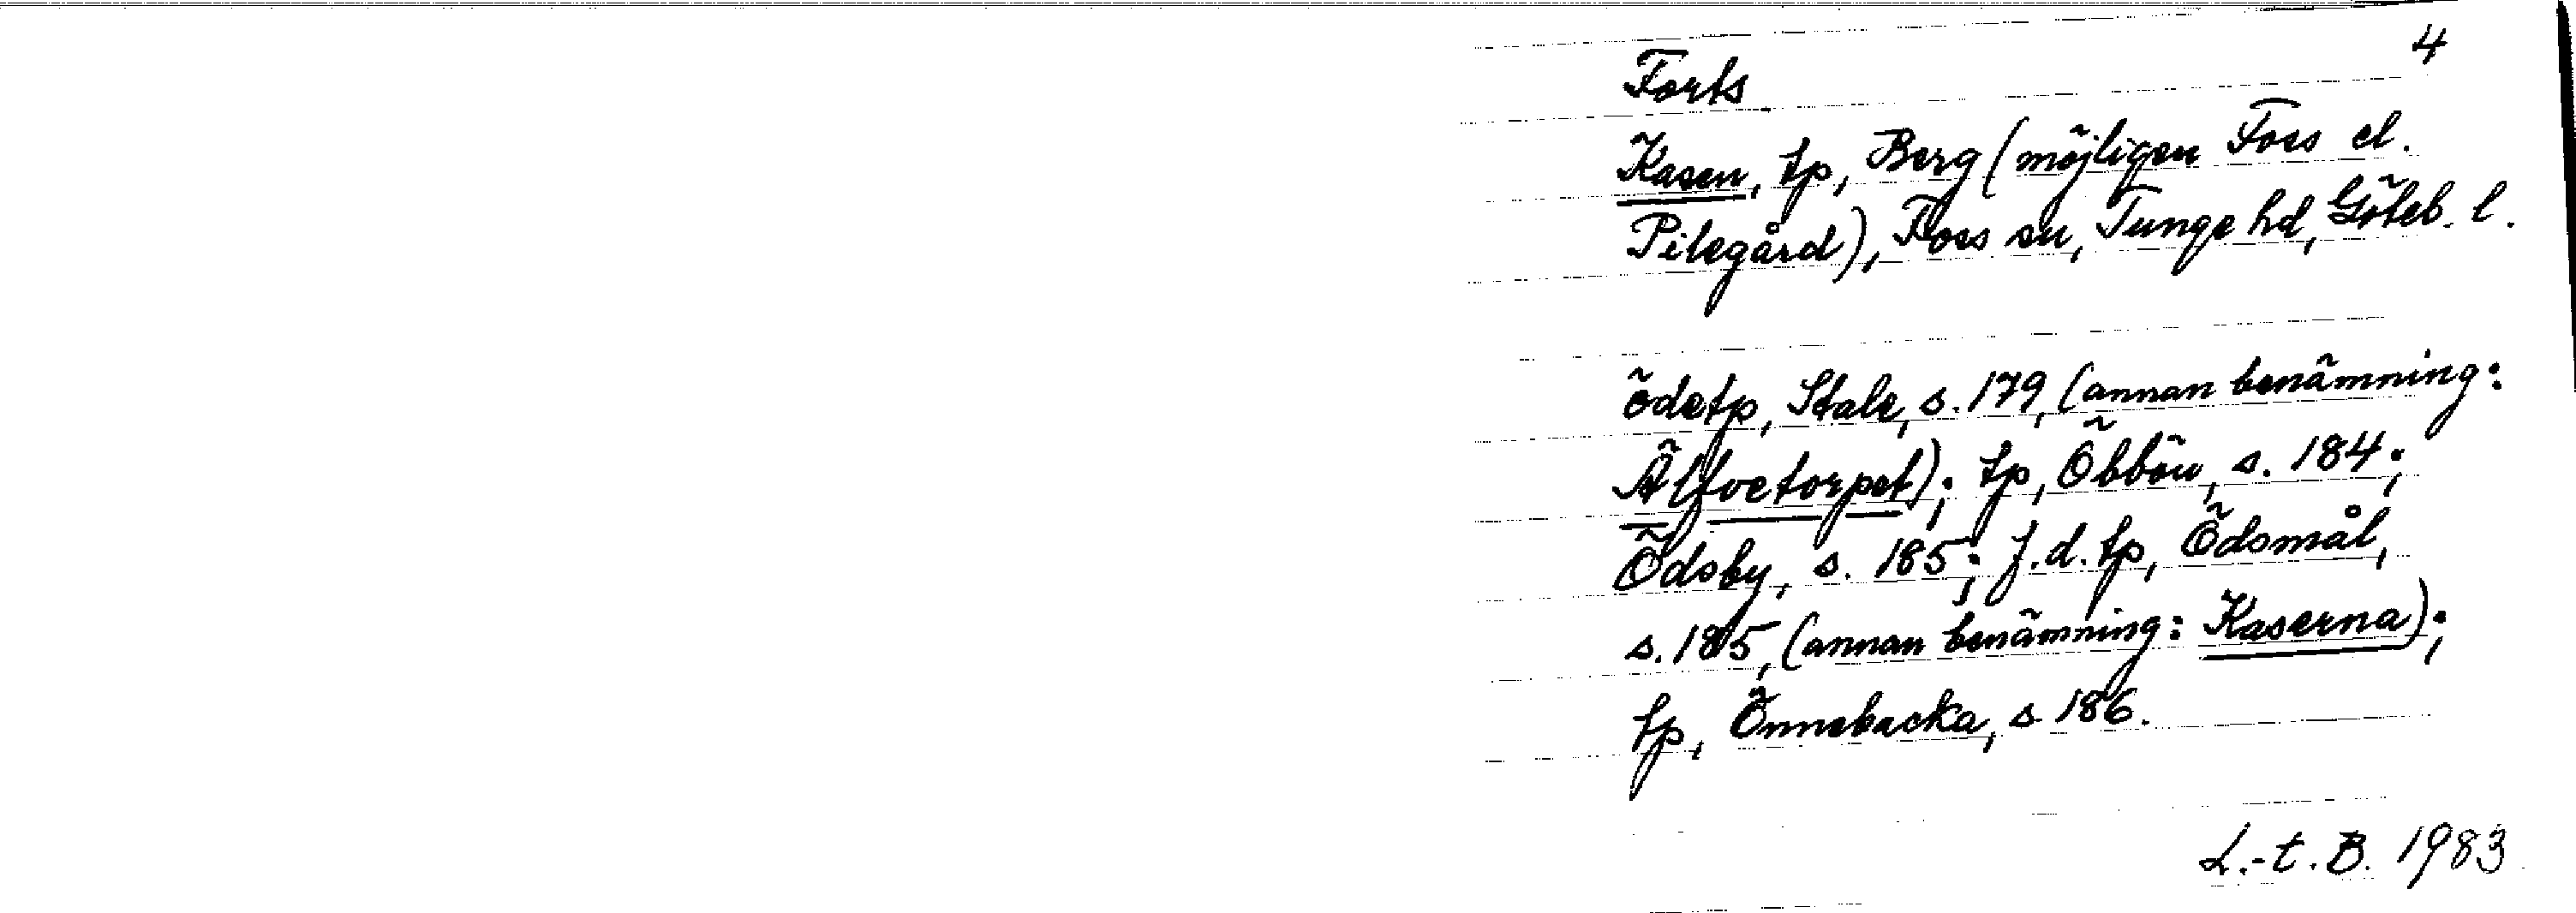 4
Forts
Kasen, tp, Berg (möjligen Foss el.
Pilegård), Foss sn, Tunge hd, Göteb. l.
ödetp, Stale, s. 179, (annan benämning:
Älfvetorpet); tp, Öbbön, s. 184;
Ödsby, s. 185; f.d. tp, Ödsmål,
s. 185, (annan benämning: Kaserna);
tp, Önnebacka, s 186.
L.-t. B. 1983